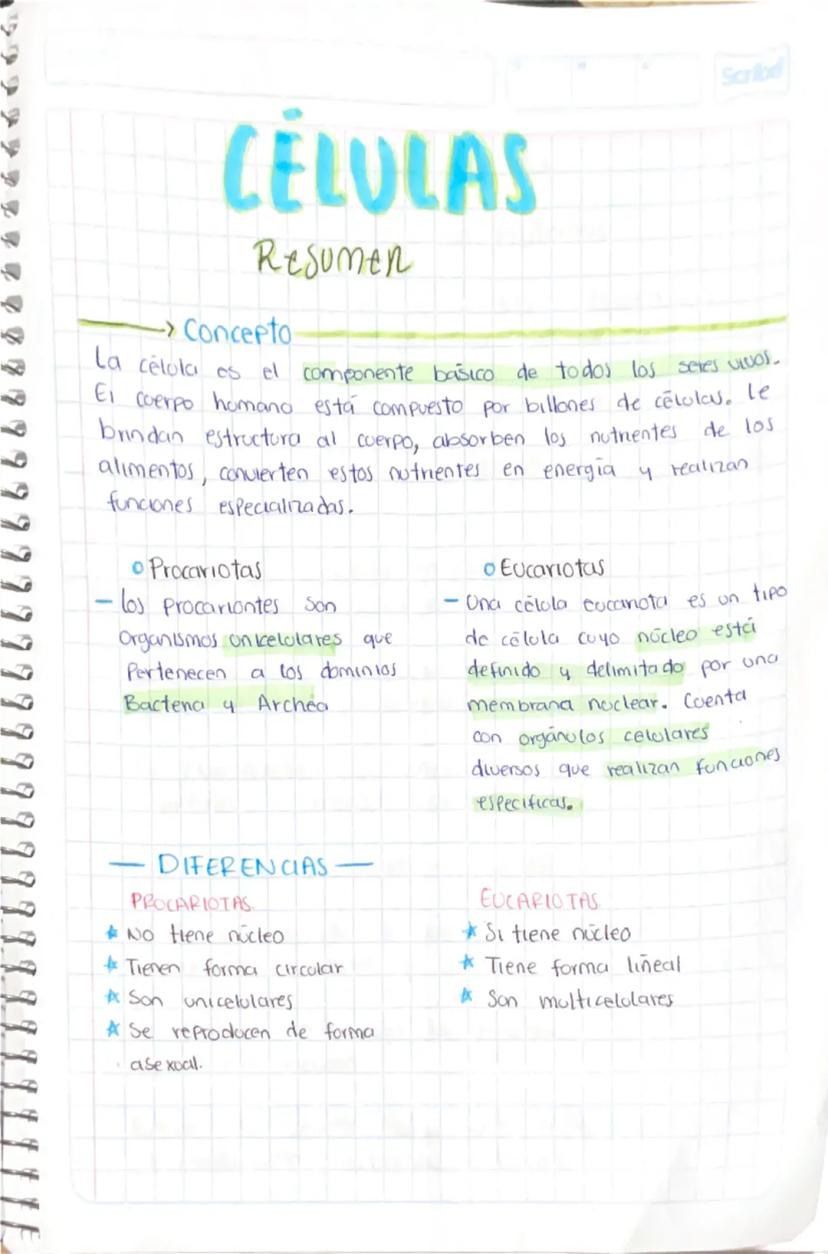 Scribe
CÉLULAS
Resumen
→ Concepto
La célula es el componente básico de todos los seres vivos.
El cuerpo humano está compuesto por billones de células. Le
brindan estructura al cuerpo, absorben los nutrientes de los
alimentos, convierten estos nutrientes en energía y realizan
funciones especializadas.
Procariotas
- los procariontes son
Organismos unicelulares que
Pertenecen a los dominios
Bacteria y Archéa
Eucariotas
- Una célula eucariota es un tipo
de célula cuyo núcleo está
definido y delimitado por una
membrana nuclear. Cuenta
con orgánulos celulares
diversos que realizan funciones
especificas.
— DIFERENCIAS —
PROCARIOTAS.
★ No tiene núcleo
★ Tienen forma circular
★ Son unicelulares
★ Se reproducen de forma
asexual.
EUCARIOTAS
★ Si tiene núcleo
★ Tiene forma liñeal
★ Son multicelulares